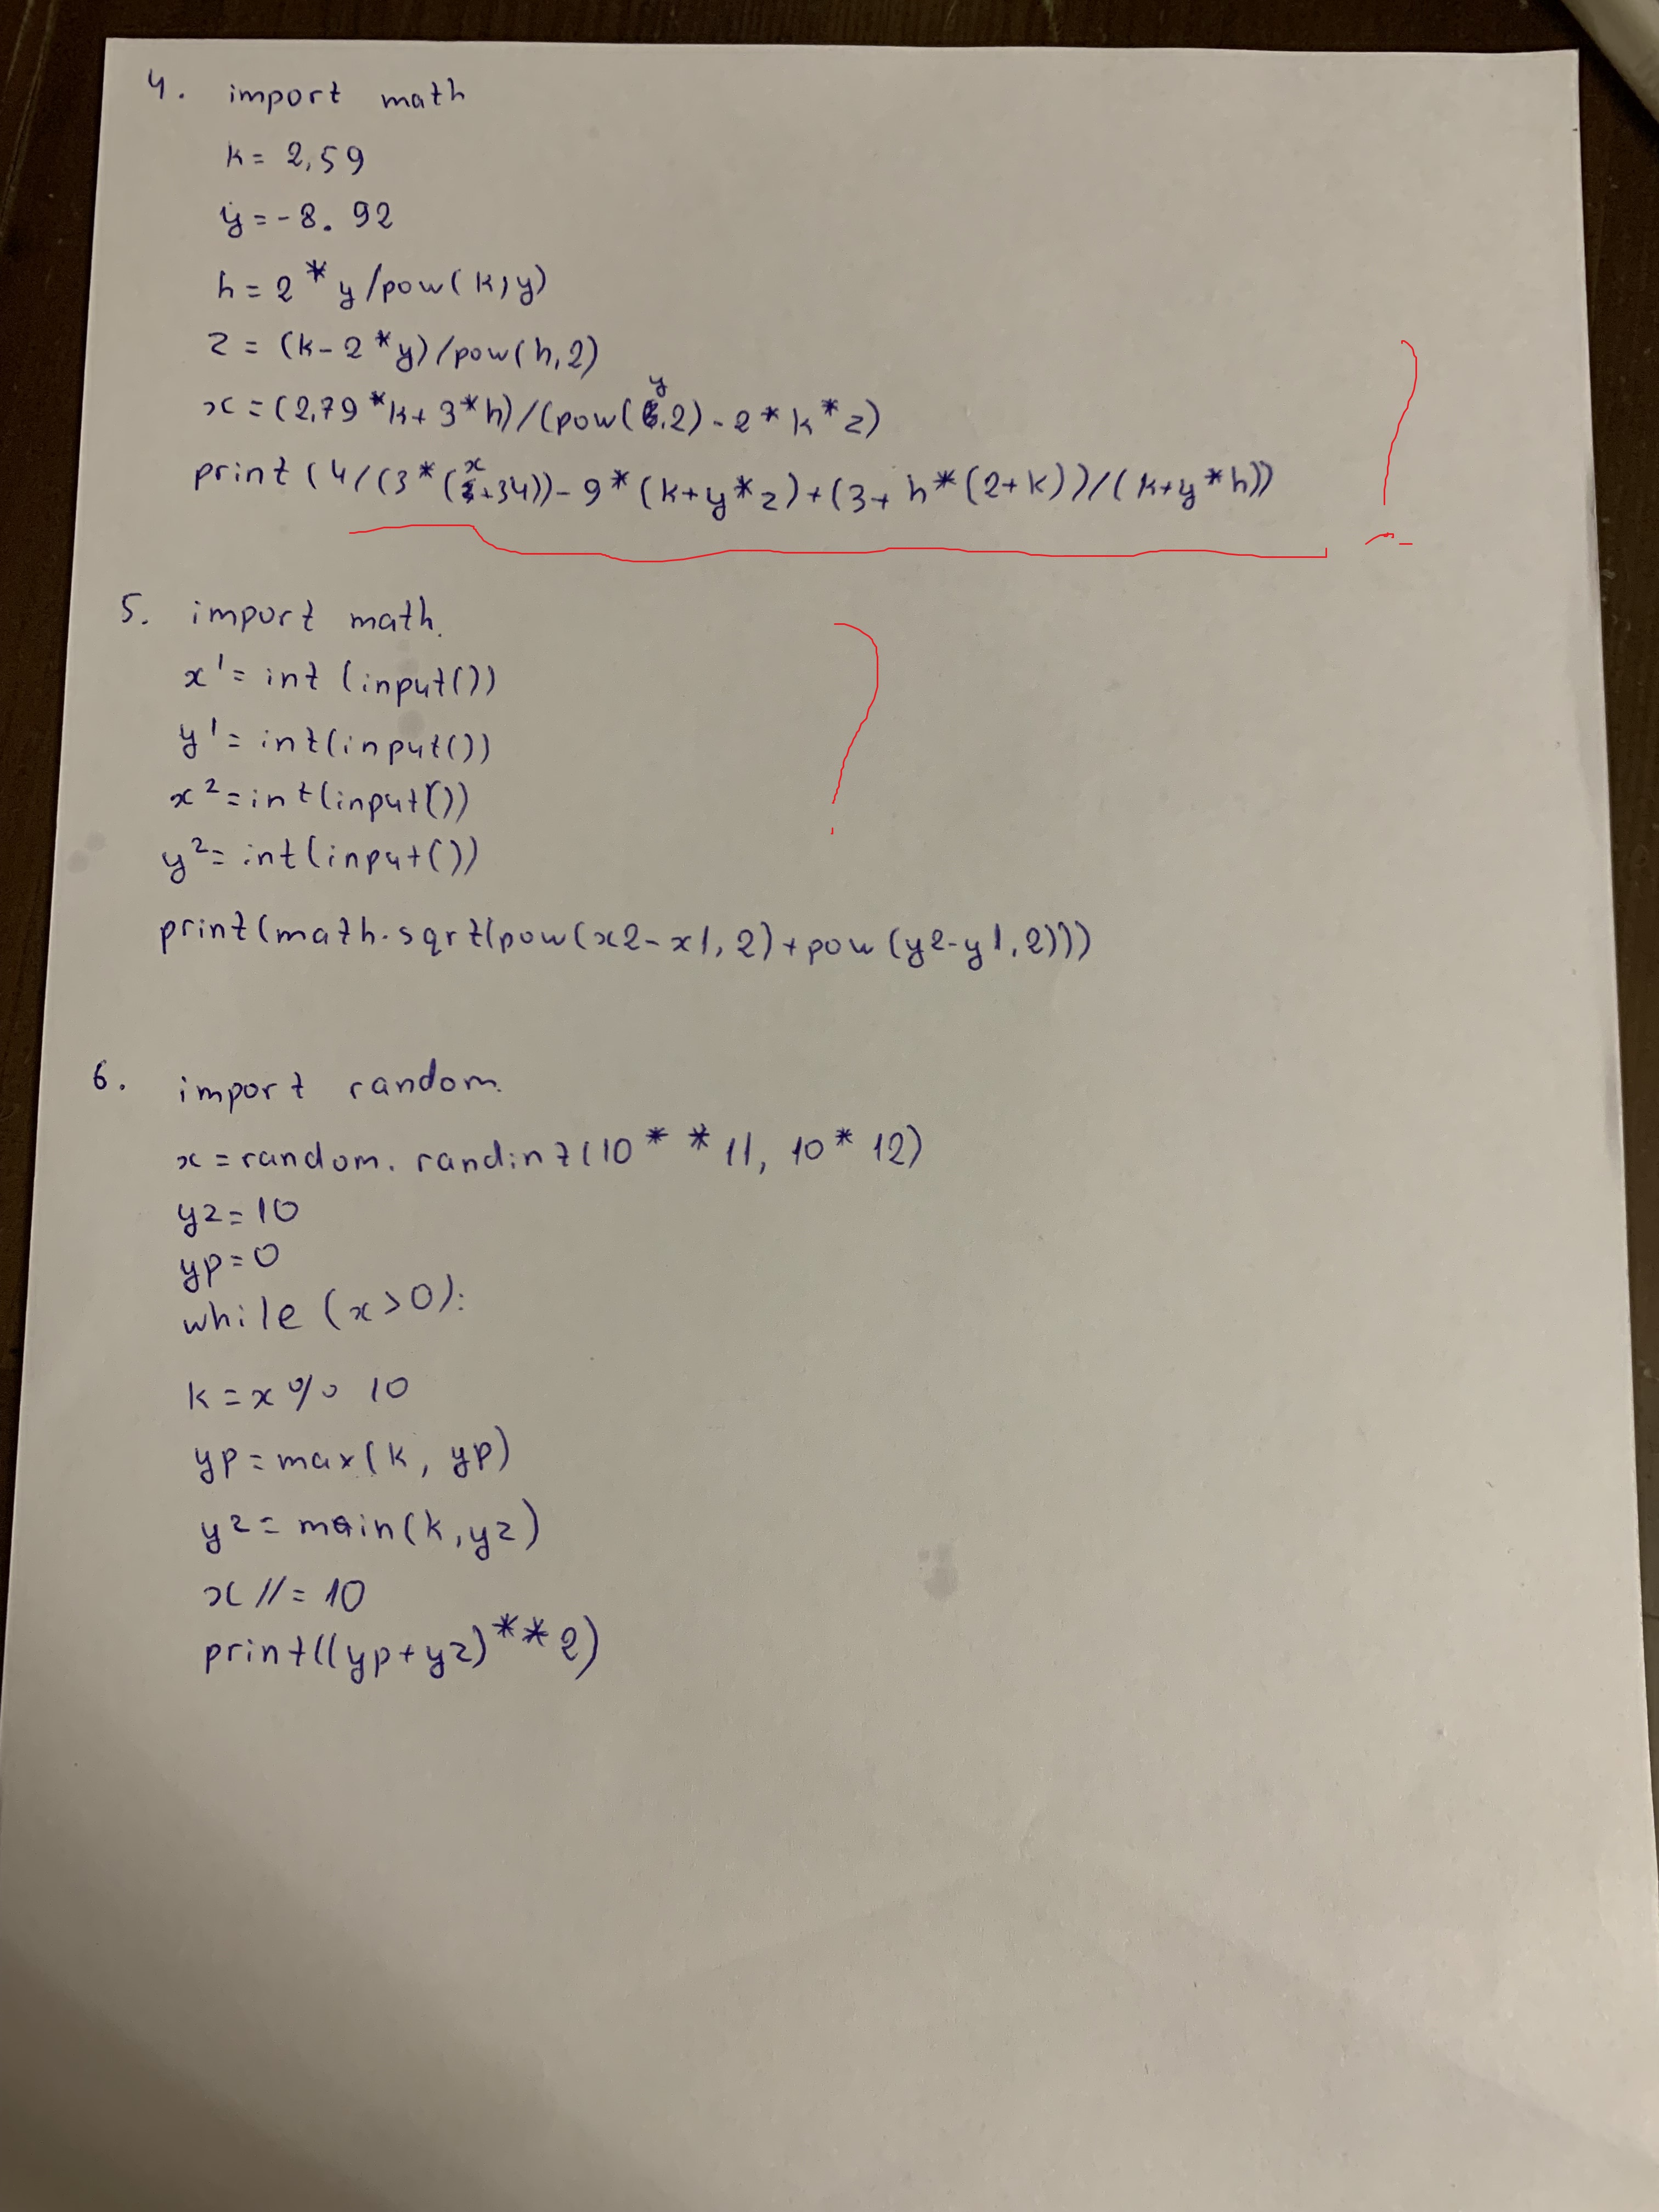 4. import math
k = 2,59
y = -8. 92
h = 2 * y /pow( k, y)
z = (k - 2 * y) /pow( h, 2)
y
x = (2,79 * k + 3 * h) / (pow( , 2) - 2 * k * z)
x
print ( 4 / (3 * ( +34)) - 9 * (k + y * z) + (3 + h * (2 + k)) / ( k + y * h))
5. import math.
x¹ = int (input())
y¹ = int(input())
x² = int(input())
y² = int(input())
print(math.sqrt(pow(x2-x1, 2) + pow (y2-y1, 2)))
6. import random.
x = random. randint(10 * * 11, 10 * 12)
yz = 10
yp = 0
while (x > 0):
k = x % 10
yp = max(k, yp)
yz = main(k, yz)
x //= 10
print((yp + yz) ** 2)